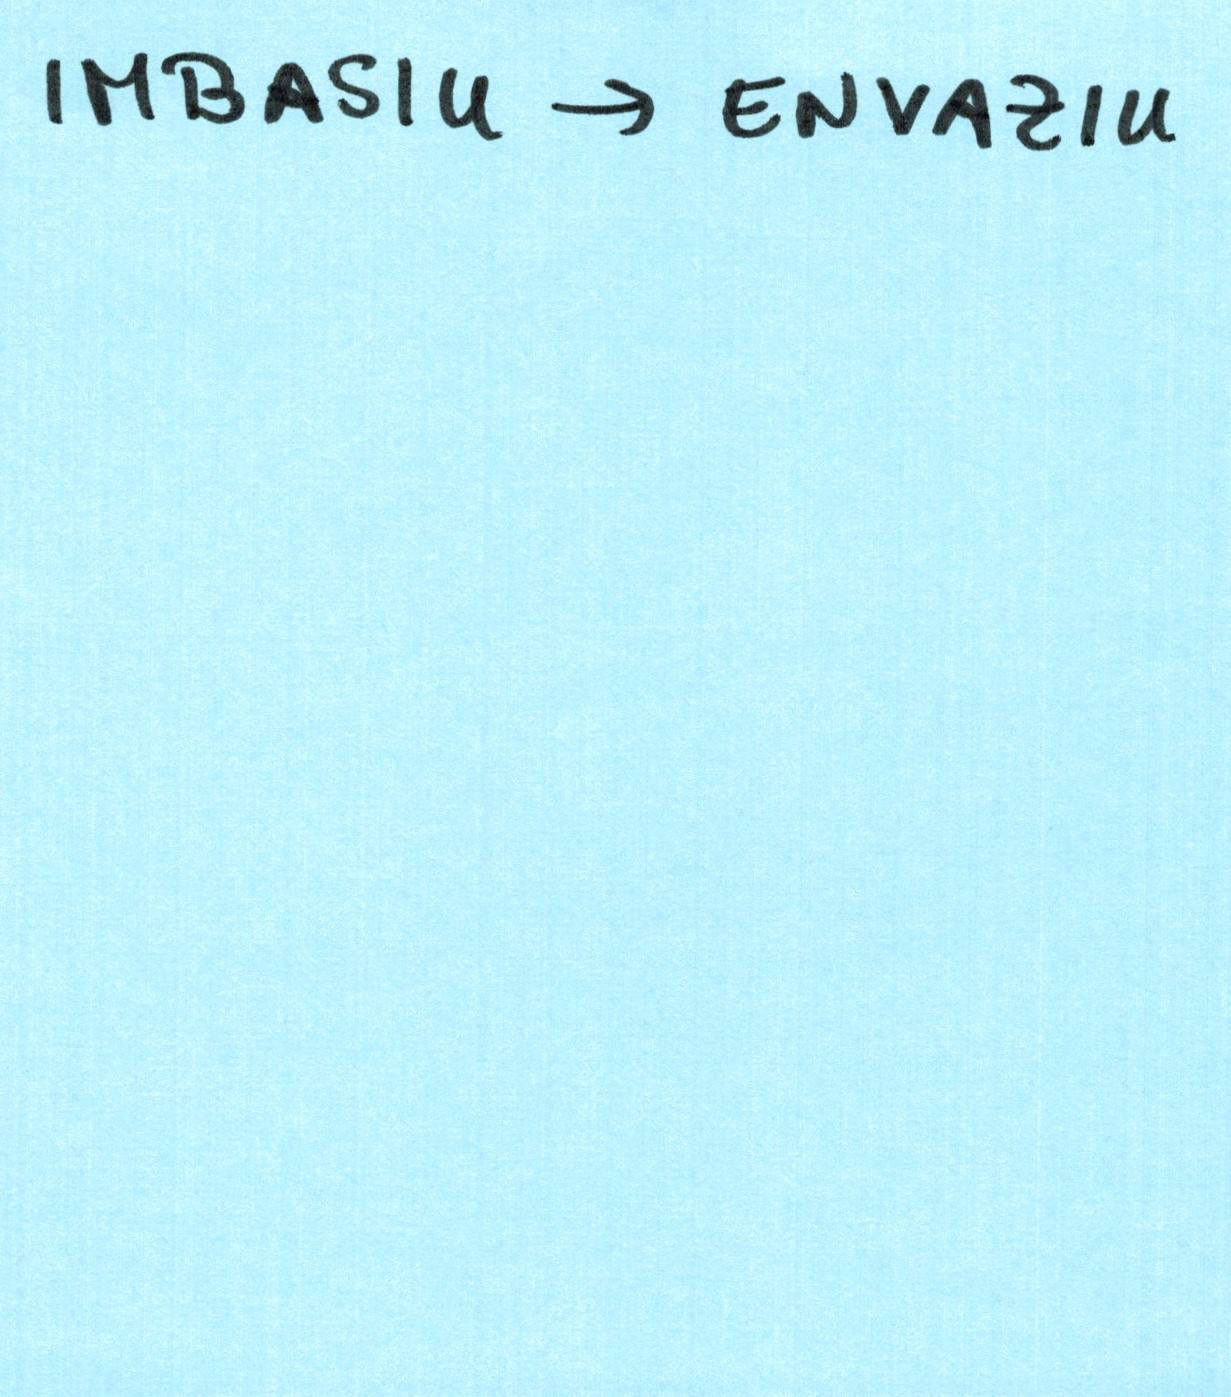 IMBASIU → ENVAZIU